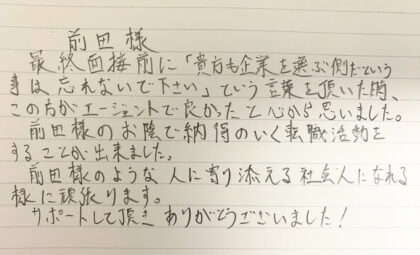 前田様
最終面接前に「貴方も企業を選ぶ側だという
事は忘れないで下さい」という言葉を頂いた時、
この方がエージェントで良かったと心から思いました。
前田様のお陰で納得のいく転職活動を
することが出来ました。
前田様のような人に寄り添える社会人になれる
様に頑張ります。
サポートして頂きありがとうございました!